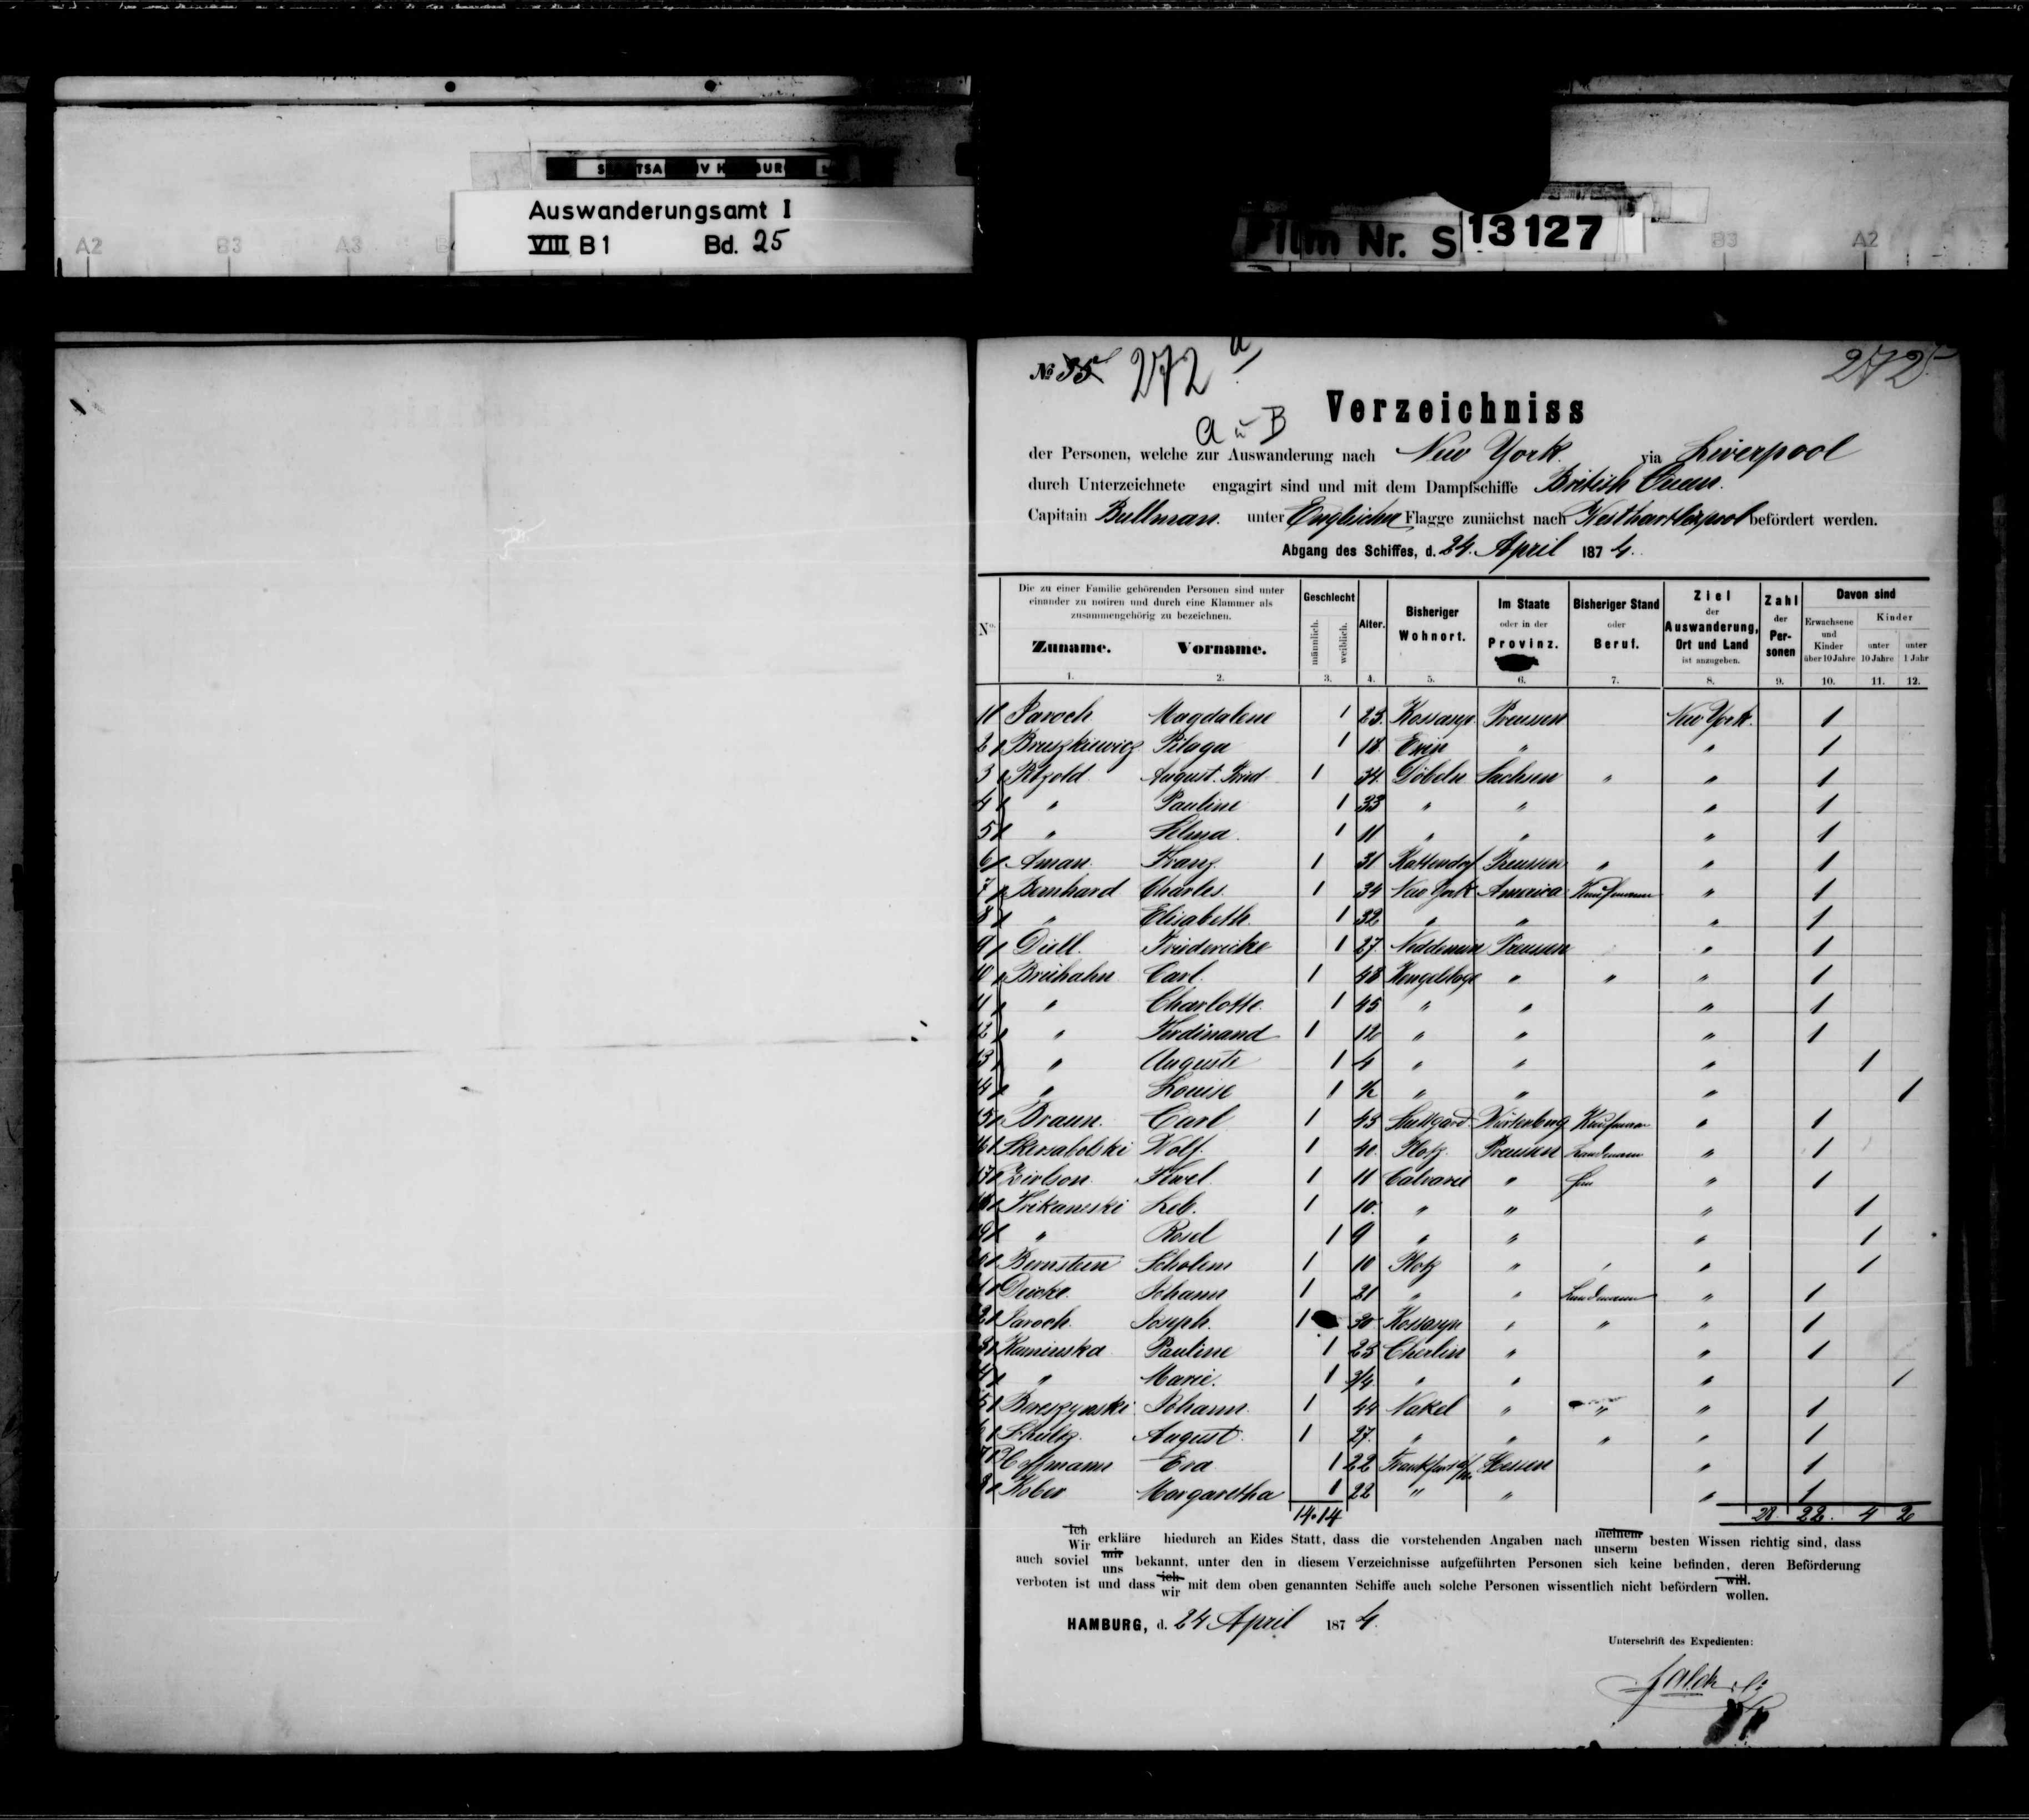 Auswanderungsamt I
VIII B 1 Bd. 25
Film Nr. S 13127
A2 B3 A3
B3 A2
№ 35 272 a
272
a u B
Verzeichniss
der Personen, welche zur Auswanderung nach New York. via Liverpool
durch Unterzeichnete engagirt sind und mit dem Dampfschiffe British Queen.
Capitain Bullman. unter Englischer Flagge zunächst nach Westhartlepool befördert werden.
Abgang des Schiffes, d. 24. April 1874.
Die zu einer Familie gehörenden Personen sind unter
einander zu notiren und durch eine Klammer als
zusammengehörig zu bezeichnen.
No. Zuname. Vorname. Geschlecht männlich. weiblich. Alter. Bisheriger Wohnort. Im Staate oder in der Provinz. Bisheriger Stand oder Beruf. Ziel der Auswanderung, Ort und Land ist anzugeben. Zahl der Personen Davon sind Erwachsene und Kinder über 10 Jahre Kinder unter 10 Jahre unter 1 Jahr
1. 2. 3. 4. 5. 6. 7. 8. 9. 10. 11. 12.
1 Paroch Magdalene 1 25. Preussen New York. 1
2 Bruszkiewicz Pilaga 1 18. Exin " " 1
3 Petzold August Fried 1 34. Döbeln Sachsen " " 1
4 " Pauline 1 33 " " " 1
5 " Selma. 1 11 " " " 1
6 Aman. Franz 1 31 Preussen " " 1
7 Bernhard Charles. 1 34 New York America Kaufmann " 1
8 " Elisabeth. 1 32 " " " 1
9 Diell. Friedericke 1 27. Preussen " 1
10 Breihahn Carl. 1 48 " " " 1
11 " Charlotte. 1 45 " " " 1
12 " Ferdinand 1 12 " " " 1
13 " Auguste 1 4 " " " 1
14 " Louise 1 " " " 1
15 Braun. Carl 1 43 Stuttgard Würtenberg Kaufmann " 1
16 Skersabolski Wolf. 1 40. Plotz. Preussen Landmann " 1
17 Zirlson. 1 11 Calvarie " " 1
18 Trikanski Leb. 1 10. " " " 1
19 " Rosel 1 9 " " " 1
20 Bernstein Scholem 1 10 Plotz " " " 1
21 Johann 1 21 " " Landmann " 1
22 Paroch. Joseph. 1 30. " " " 1
23 Kaminska Pauline 1 23 " " 1
24 " Marie. 1 3/4 " " " 1
25 Bereszynski Johann. 1 44 Nakel " " " 1
26 Schultz. August. 1 27. " " " " 1
27 Hoffmann Eva 1 22 Frankfurt a/M Hessen " 1
28 Kober Margaretha 1 22 " " " 1
14. 14 28. 22. 4 2
Ich Wir erkläre hiedurch an Eides Statt, dass die vorstehenden Angaben nach meinem unserm besten Wissen richtig sind, dass
auch soviel mir uns bekannt, unter den in diesem Verzeichnisse aufgeführten Personen sich keine befinden, deren Beförderung
verboten ist und dass ich wir mit dem oben genannten Schiffe auch solche Personen wissentlich nicht befördern will. wollen.
HAMBURG, d. 24 April 1874.
Unterschrift des Expedienten: